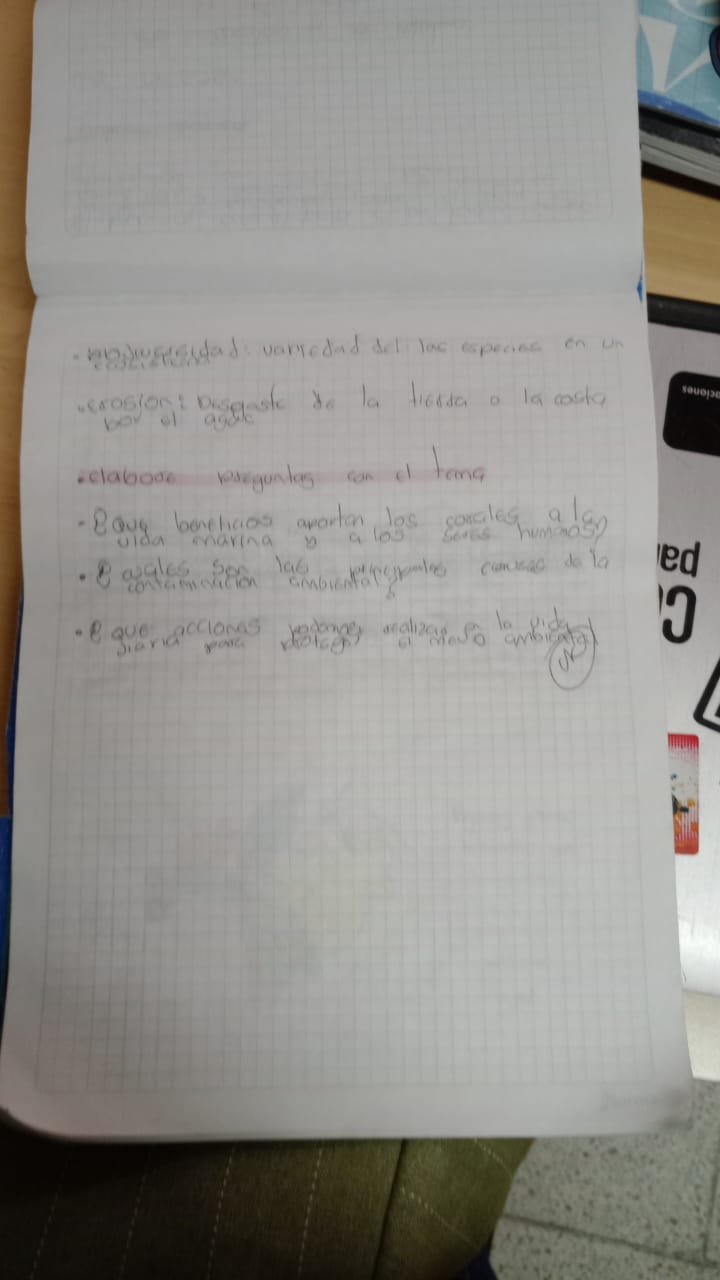 • biodiversidad: variedad del las especies en un
ecosistema
• erosion: Desgaste de la tierra o la costa
por el agua
• elabore preguntas con el tema
• ¿que beneficios aportan los corales a la
vida marina y a los seres humanos?
• ¿cuales son las principales causas de la
contaminación ambiental?
• ¿que acciones podemos realizar en la vida
diaria para proteger el medio ambiente?